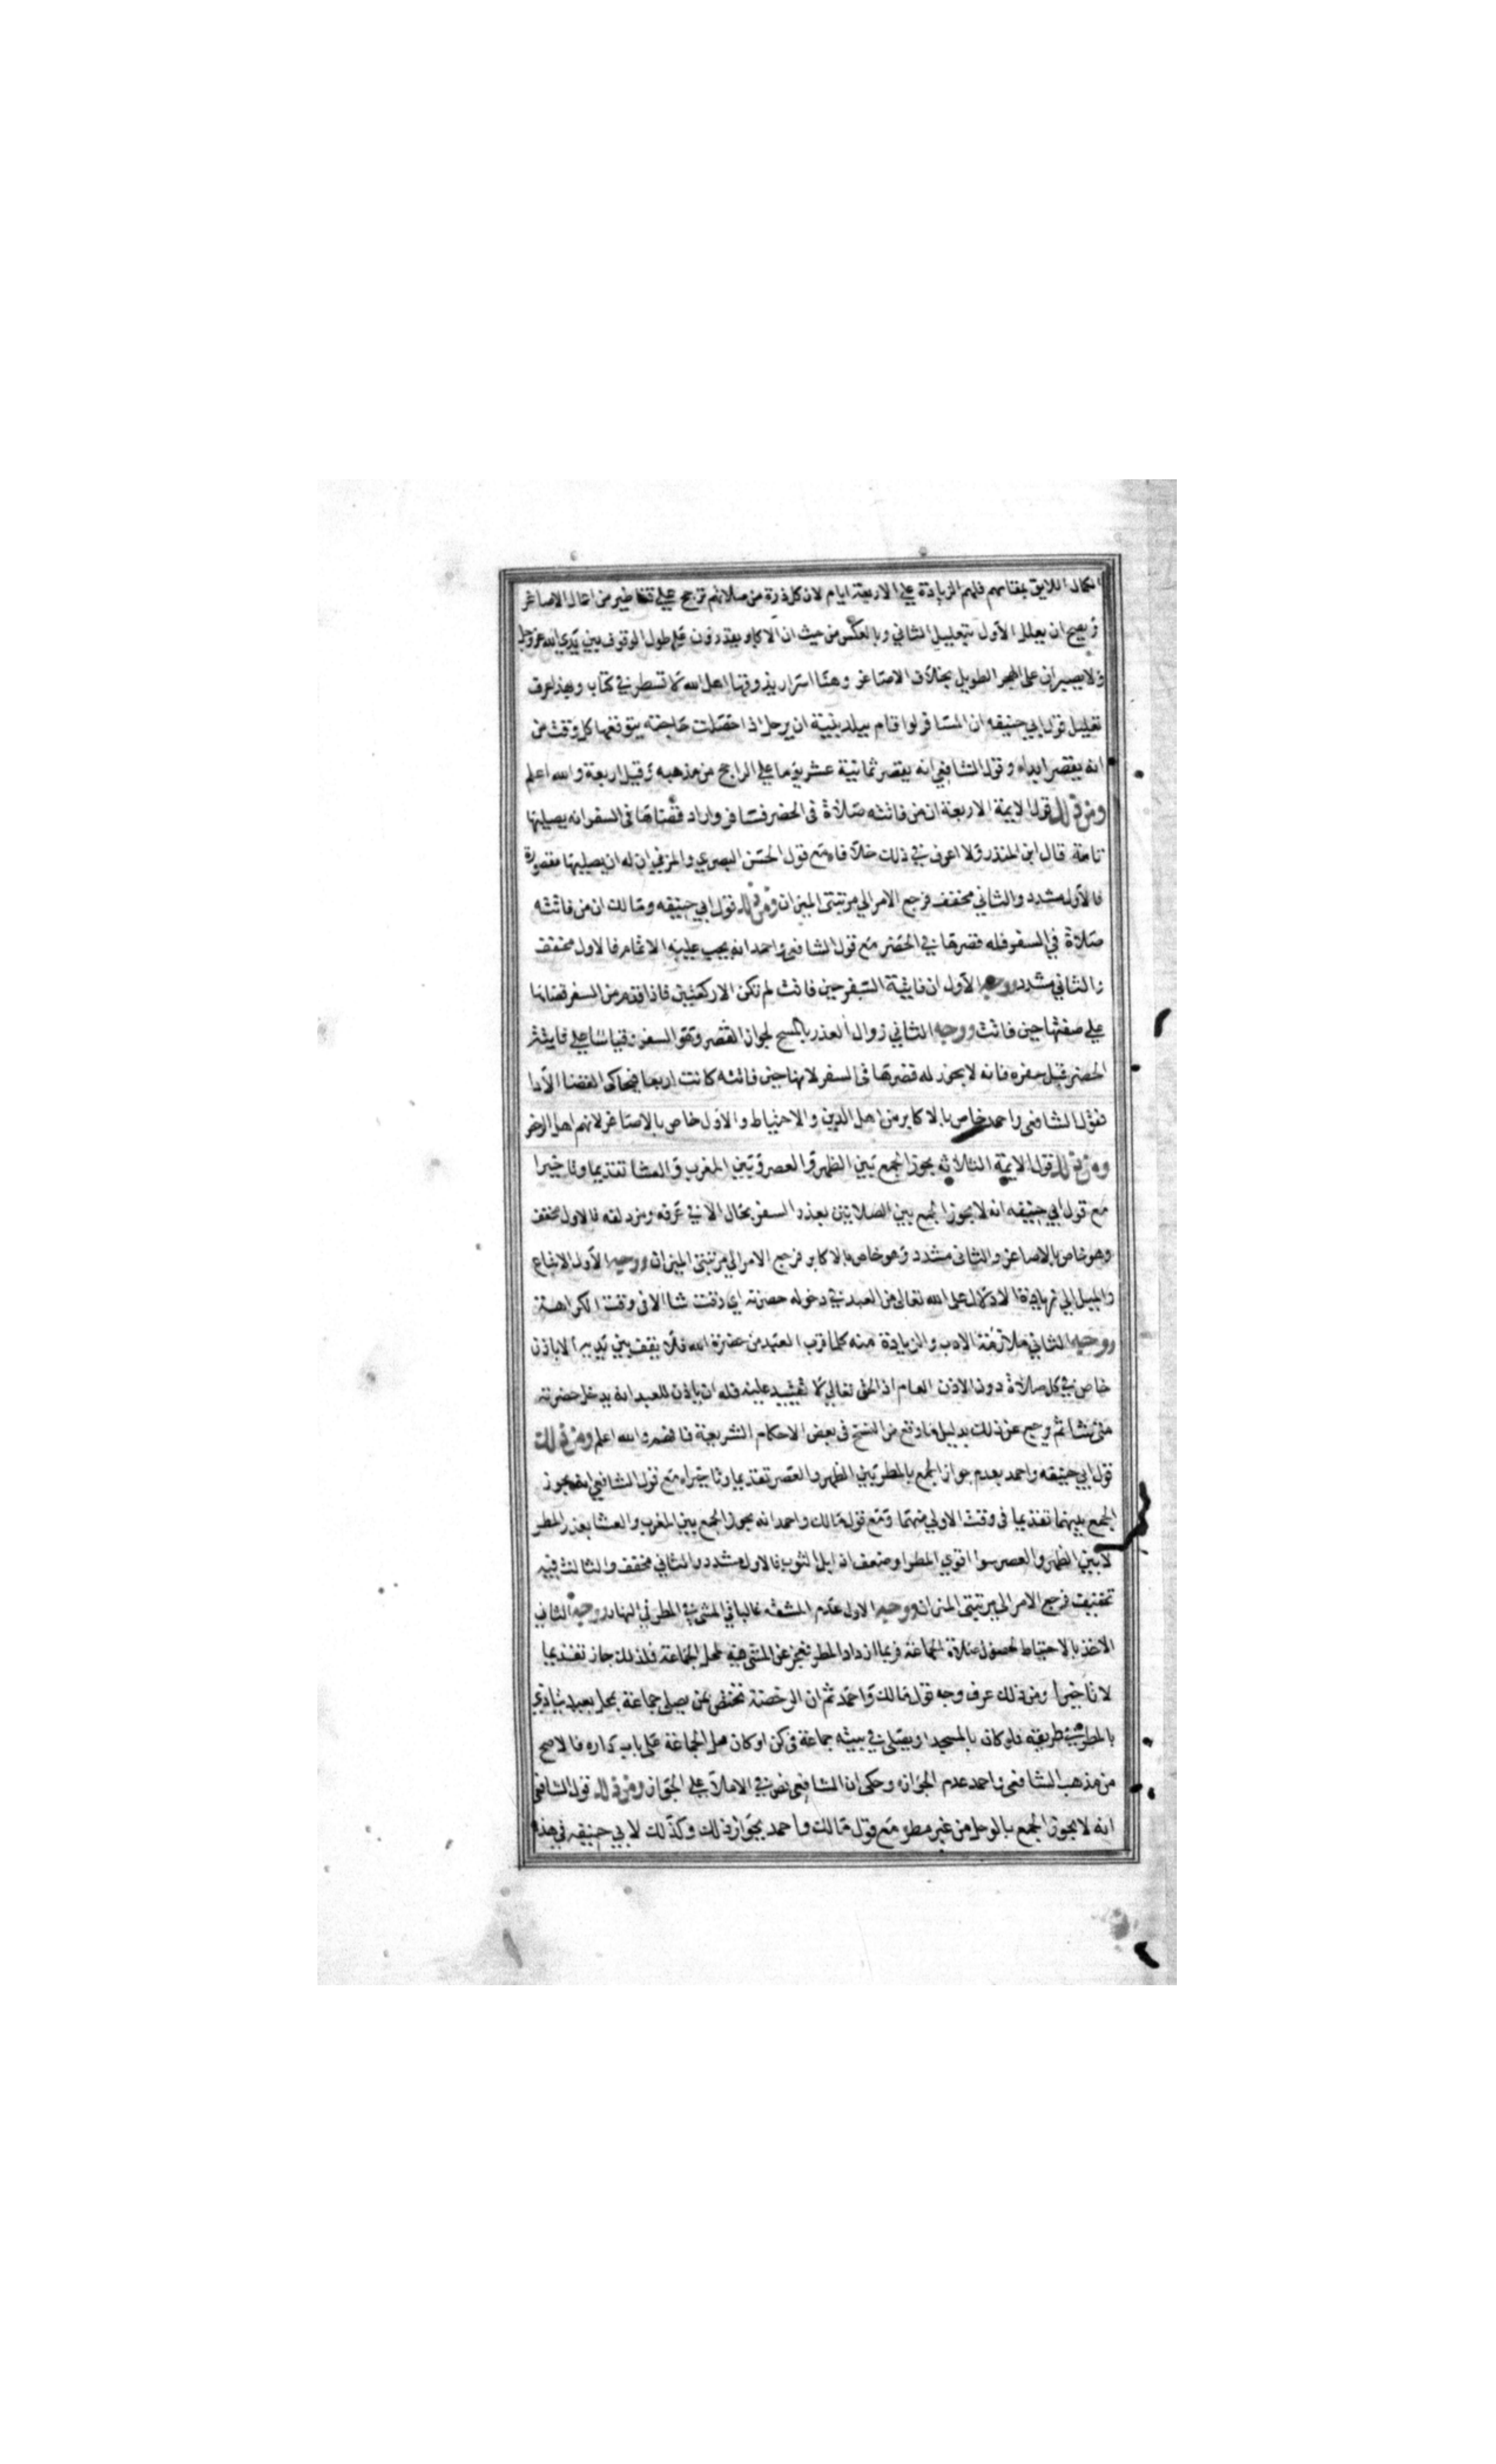 الكمال اللايق بمقامهم فلهم الزيادة علي الاربعة ايام لان كل ذرة من صلاتهم ترجح علي قناطير من اعمال الاصاغر
ويصح ان يعلل الاول بتعليل الثاني وبالعكس من حيث ان الاكابر يقدرون علي طول الوقوف بين يدي الله عز وجل
ولا يصبران على الهجر الطويل بخلاف الاصاغر وهنا اسرار يذوقها اهل الله لا تسطر في كتاب وبهذا عرف
تعليل قول ابي حنيفه ان المسافر لو اقام ببلد بنية ان يرحل اذا حصلت حاجته يتوقعها كل وقت من
انه يقصر ابداء وقول الشافعي انه يقصر ثمانية عشر يوما علي الراجح من مذهبه وقيل اربعة والله اعلم
ومن ذلك قول الايمة الاربعة ان من فاتته صلاة في الحضر فسافر واراد قضاها في السفر انه يصليها
تامة قال ابن المنذر ولا اعرف في ذلك خلافا مع قول الحسن البصري والمزني ان له ان يصليها مقصورة
فالاول مشدد والثاني مخفف فرجع الامر الي مرتبتي الميزان ومن ذلك قول ابي حنيفه ومالك ان من فاتته
صلاة في السفر فله قصرها في الحضر مع قول الشافعي واحمد انه يجب عليه الاتمام فالاول مخفف
والثاني مشدد ووجه الاول ان فايتة السفر حين فاتت لم تكن الا ركعتين فاذا قدم من السفر قضاها
علي صفتها حين فاتت ووجه الثاني زوال العذر المبيح لجواز القصر وهو السفر وقياسا علي فايتة
الحضر قبل سفره فانه لا يجوز له قصرها في السفر لانها حين فاتته كانت اربعا فيحاكى القضا الادا
فقول الشافعي واحمد خاص بالاكابر من اهل الدين والاحتياط والاول خاص بالاصاغر لانهم اهل الرخص
ومن ذلك قول الايمة الثلاثه يجوز الجمع بين الظهر والعصر وبين المغرب والعشا تقديما وتاخيرا
مع قول ابي حنيفه انه لا يجوز الجمع بين الصلاتين بعذر السفر بحال الا في عرفه ومزدلفه فالاول مخفف
وهو خاص بالاصاغر والثاني مشدد وهو خاص بالاكابر فرجع الامر الي مرتبتي الميزان ووجه الاول الاتباع
والميل الي زيادة الادلال على الله تعالى من العبد في دخوله حضرته اي وقت شا الا في وقت الكراهة
ووجه الثاني ملازمة الادب والزيادة منه كلما قرب العبد من حضرة الله فلا يقف بين يديه الا باذن
خاص في كل صلاة دون الاذن العام اذ الحق تعالي لا تقييد عليه فله ان ياذن للعبد انه يدخل حضرته
متى شا ثم رجع عن ذلك بدليل ما وقع من النسخ في بعض الاحكام الشريعة فافهم والله اعلم ومن ذلك
قول ابي حنيفه واحمد بعدم جواز الجمع بالمطر بين الظهر والعصر تقديما وتاخيرا مع قول الشافعي انه يجوز
الجمع بينهما تقديما في وقت الاولي منهما ومع قول مالك واحمد انه يجوز الجمع بين المغرب والعشا بعذر المطر
لا بين الظهر والعصر سوا قوي المطر او ضعف اذا بل الثوب فالاول مشدد والثاني مخفف والثالث فيه
تخفيف فرجع الامر الي مرتبتي الميزان ووجه الاول عدم المشقه غالبا في المشي في المطر في النهار ووجه الثاني
الاخذ بالاحتياط لحصول صلاة الجماعة فربما ازداد المطر فعجز عن المشي فيه لمحل الجماعة فلذلك جاز تقديما
لا تاخيرا ومن ذلك عرف وجه قول مالك واحمد ثم ان الرخصة تختص بمن يصلي جماعة بمحل بعيد يتاذي
بالمطر في طريقه فلو كان بالمسجد او يصلى في بيته جماعة في كن او كان محل الجماعة على باب داره فالاصح
من مذهب الشافعي واحمد عدم الجواز وحكى ان الشافعي نص في الاملا علي الجواز ومن ذلك قول الشافعي
انه لا يجوز الجمع بالوحل من غير مطر مع قول مالك واحمد بجواز ذلك وكذلك لابي حنيفه في هذه